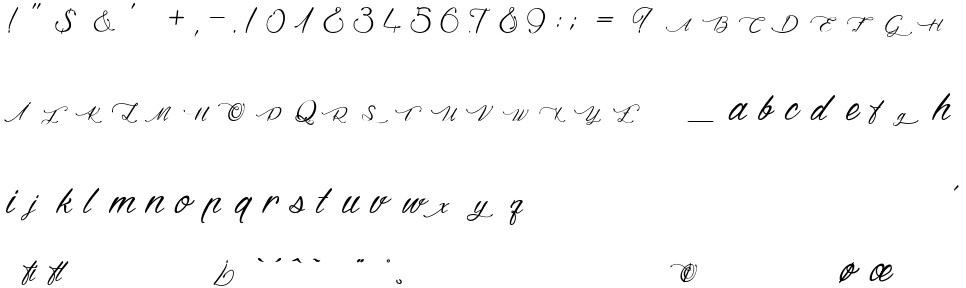 ! " $ & ' + , - . / 0 1 2 3 4 5 6 7 8 9 : ; = ? A B C D E F G H
I J K L M N O P Q R S T U V W X Y Z _ a b c d e f g h
i j k l m n o p q r s t u v w x y z ´
fi fl ` ´ ^ ~ ¨ ° ¸ Ø ø œ